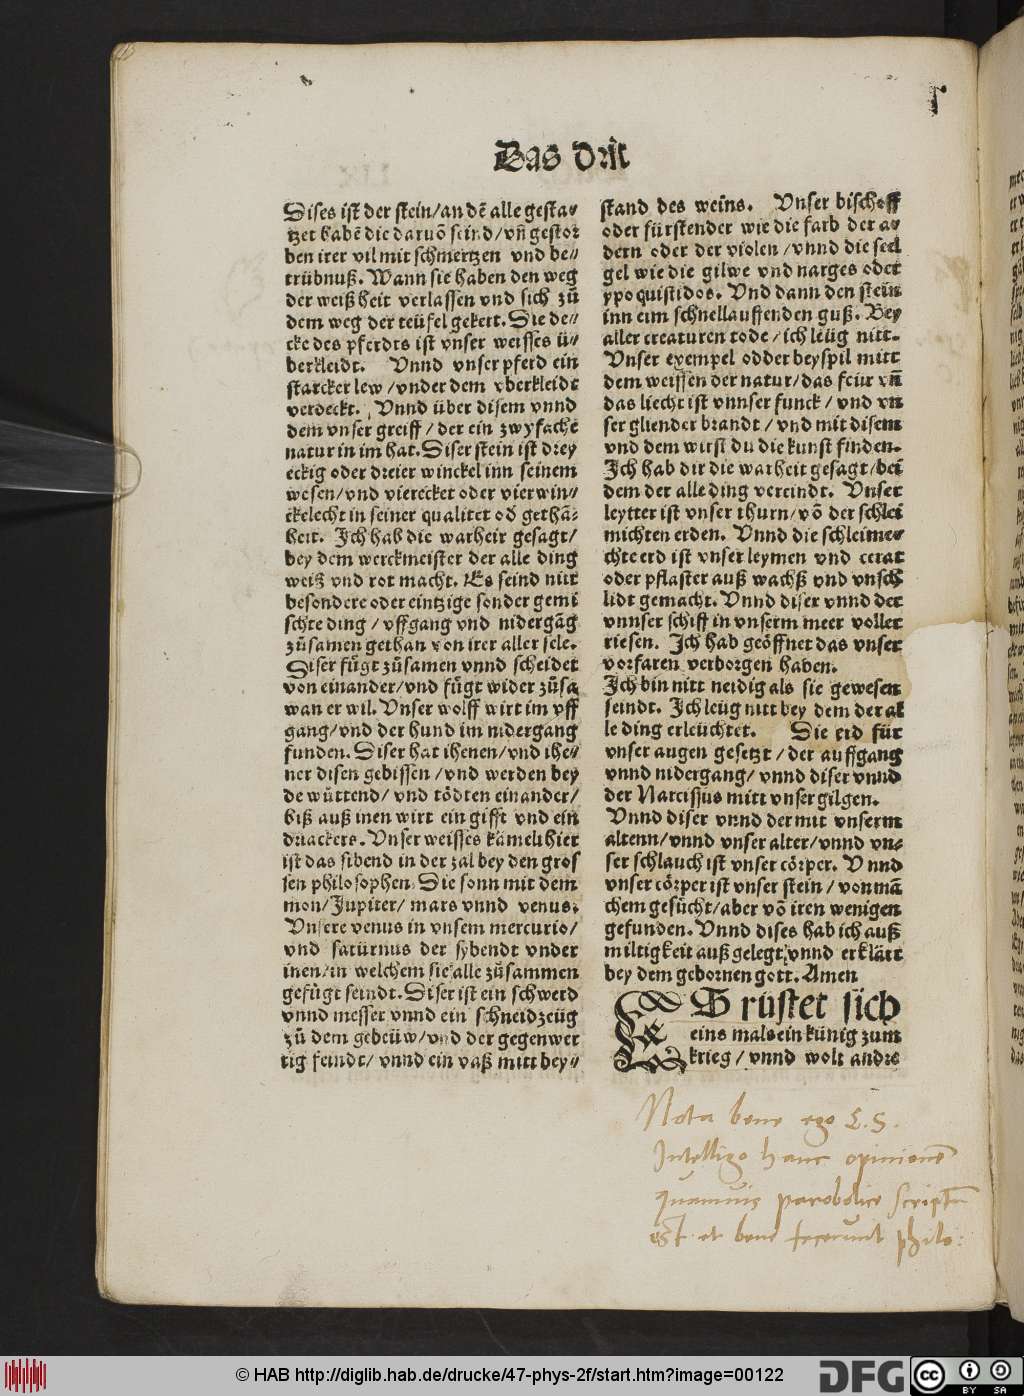 Das drit
Dises ist der stein/an dē alle gesta⸗
tzet habē die daruō seind/vñ gestor
ben irer vil mit schmertzen vnd be⸗
trübnuß. Wann sie haben den weg
der weißheit verlassen vnd sich zů
dem weg der teüfel gekert. Die de⸗
cke des pferdts ist vnser weisses ü⸗
berkleidt. Vnnd vnser pferd ein
starcker lew/vnder dem vberkleidt
verdeckt. Vnnd über disem vnnd
dem vnser greiff/der ein zwyfache
natur in im hat. Diser stein ist drey
eckig oder dreier winckel inn seinem
wesen/vnd vierecket oder vierwin⸗
ckelecht in seiner qualitet od gethā⸗
heit. Ich hab die warheir gesagt/
bey dem werckmeister der alle ding
weiß vnd rot macht. Es seind nitt
besondere oder eintzige sonder gemi
schte ding/vffgang vnd nidergāg
zůsamen gethan von irer aller sele.
Diser fügt zůsamen vnnd scheidet
von einander/vnd fügt wider zůsa
wan er wil. Vnser wolff wirt im vff
gang/vnd der hund im nidergang
funden. Diser hat ihenen/vnd ihe⸗
ner disen gebissen/vnd werden bey
de wüttend/vnd tödten einander/
biß auß inen wirt ein gifft vnd ein
driackers. Vnser weisses kamelthier
ist das sibend in der zal bey den gros
sen philosophen. Die sonn mit dem
mon/Jupiter/mars vnnd venus.
Vnsere venus in vnsem mercurio/
vnd saturnus der sybendt vnder
inen/in welchem sie alle zůsammen
gefügt seindt. Diser ist ein schwerd
vnnd messer vnnd ein schneidzeüg
zů dem gebeüw/vnd der gegenwer
tig feindt/vnnd ein vaß mitt bey⸗
stand des weins. Vnser bischoff
oder fürstender wie die farb der a⸗
dern oder der violen/vnnd die seel
gel wie die gilwe vnd narges oder
ypoquistidos. Vnd dann den stein
inn eim schnellauffenden guß. Bey
aller creaturen tode/ich leüg nitt.
Vnser exempel odder beyspil mitt
dem weissen der natur/das feür vñ
das liecht ist vnnser funck/vnd vn
ser gliender brandt/vnd mit disem
vnd dem wirst du die kunst finden.
Ich hab dir die warheit gesagt/bei
dem der alle ding vereindt. Vnser
leytter ist vnser thurn/vō der schlei
michten erden. Vnnd die schleime⸗
chte erd ist vnser leymen vnd cerat
oder pflaster auß wachß vnd vnsch
lidt gemacht. Vnnd diser vnnd der
vnnser schiff in vnserm meer voller
riesen. Ich hab geöffnet das vnser
vorfaren verborgen haben.
Ich bin nitt neidig als sie gewesen
seindt. Ich leüg nitt bey dem der al
le ding erleüchtet. Die eid für
vnser augen gesetzt/der auffgang
vnnd nidergang/vnnd diser vnnd
der Narcissus mitt vnser gilgen.
Vnnd diser vnnd der mit vnserm
altenn/vnnd vnser alter/vnnd vn⸗
ser schlauch ist vnser cörper. Vnnd
vnser cörper ist vnser stein/von mā
chem gesücht/aber vō iren wenigen
gefunden. Vnnd dises hab ich auß
miltigkeit auß gelegt vnnd erklärt
bey dem gebornen gott. Amen
ES rüstet sich
eins mals ein künig zum
krieg/vnnd wolt andre
Nota bene ego L.S.
Intelligo hanc opinionē
quamuis parobolice scriptū
est et bene fecerunt philo:
© HAB http://diglib.hab.de/drucke/47-phys-2f/start.htm?image=00122
DFG
cc
BY SA